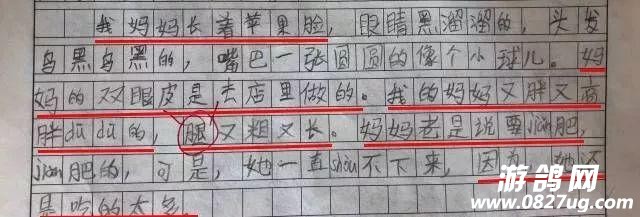 我妈妈长着苹果脸，眼睛黑溜溜的，头发
乌黑乌黑的，嘴巴一张圆圆的像个小球儿。妈
妈的双眼皮是去店里做的。我的妈妈又胖又高
胖dūdū的，腿又粗又长。妈妈老是说要jiǎn肥，
jiǎn肥的，可是，她一直shòu不下来，因为，她
是吃的太多
游鸽网
www.0827ug.com